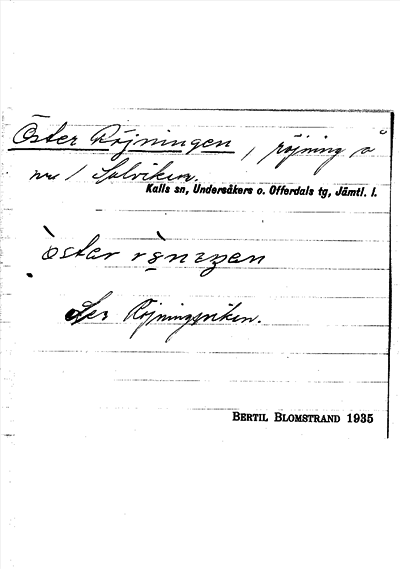 Öster Röjningen, röjning å
nr 1 Solviken.
Kalls sn, Undersåkers o. Offerdals tg, Jämtl. l.
Se Röjningsviken.
BERTIL BLOMSTRAND 1935